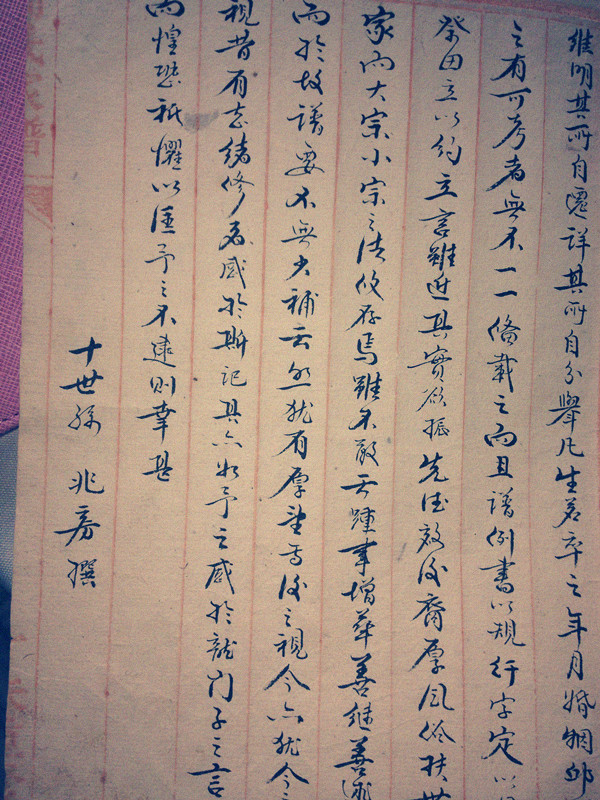 维明其所自遷詳其所自分舉凡生若卒之年月婚姻邱
之有可考者無不一一俻載之而且譜例書以規行字定以
祭田立以约立言雖近其實欲振先德敦後裔厚風俗扶世
家而大宗小宗之法攸存焉雖不敢云踵事增華善继善
而於故譜要不無少補云然犹有厚望焉後之視今亦犹今之
視昔有志绪修者感於斯记其亦如予之感於龍门子之言
而惶恐祇懼以匡予之不逮则幸甚
十世孫 兆芳 撰
家譜